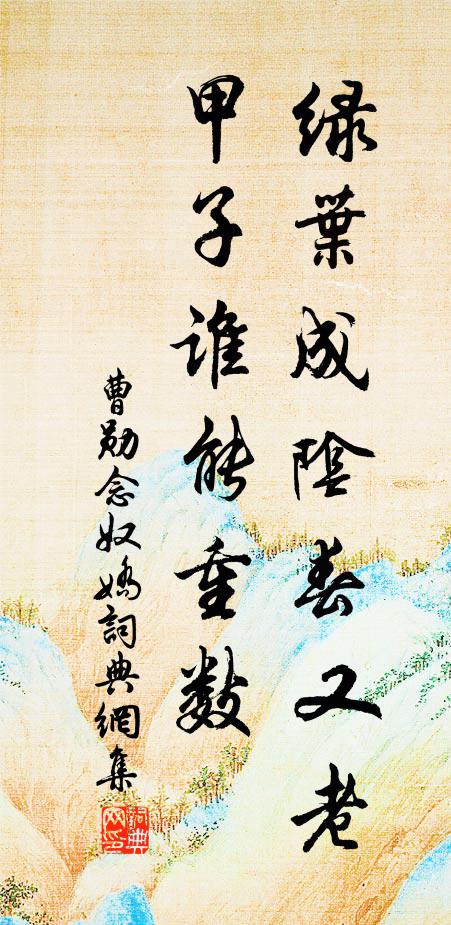 緑葉成陰春又老
甲子誰能重數
曹勛念奴嬌詞典網集
詞典網印